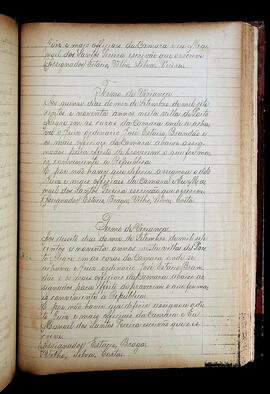 Juiz e mais officiais da Camara e eu Ma
noel dos Santos Pereira escrivão que o escrevi
Assignados Estacio, Velho, Silva,
Termo de Vereança
Aos quinze dias do mez de Setembro de mil sete
centos e noventa annos nesta villa de Porto
Alegre em as casas da Camara onde se achava
o Juiz ordinario José Estacio Brandão e
os mais officiaes da Camara abaixo assig
nados para effeito de proverem o que for mis
ter conveniente a Republica
E por não haver que deferir assignou o dito
Juiz e mais officiaes da Camara e eu Ma
noel dos Santos Pereira escrivão que o escrevi
Assignados Estacio, Braga, Velho, Silva, Costa
Termo de Vereança
Aos dezoito dias do mez de Setembro de mil se
te centos e noventa annos nesta villa de Por
to Alegre em as casas da Camara onde se
achava o Juiz ordinario José Estacio Bran
dão e os mais officiaes da Camara abaixo as
signados para effeito de proverem o que for mis
conveniente a Republica
E por não haver que deferir assignou o di
to Juiz e mais officiaes da Camara e Eu
Manoel dos Santos Pereira escrivão que o es
crevi
Assignados Estacio, Braga
Velho, Silva, Costa